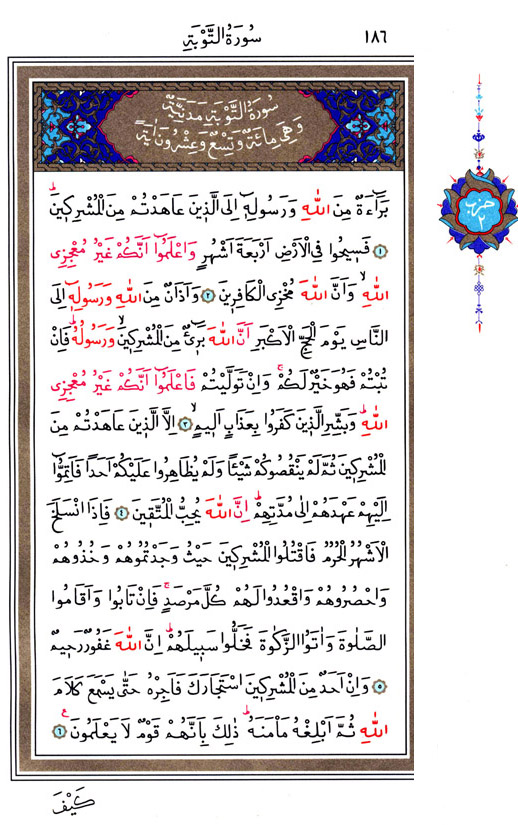 سُورَةُ التَّوْبَةِ
١٨٦
سُورَةُ التَّوْبَةِ مَدَنِيَّةٌ
وَهِيَ مِائَةٌ وَتِسْعٌ وَعِشْرُونَ اٰيَةً
حزب
٢
بَرَٓاءَةٌ مِنَ اللّٰهِ وَرَسُولِهِٓ اِلَى الَّذٖينَ عَاهَدْتُمْ مِنَ الْمُشْرِكٖينَؕ
﴿١﴾ فَسٖيحُوا فِي الْاَرْضِ اَرْبَعَةَ اَشْهُرٍ وَاعْلَمُٓوا اَنَّكُمْ غَيْرُ مُعْجِزِي
اللّٰهِۙ وَاَنَّ اللّٰهَ مُخْزِي الْكَافِرٖينَ ﴿٢﴾ وَاَذَانٌ مِنَ اللّٰهِ وَرَسُولِهِٓ اِلَى
النَّاسِ يَوْمَ الْحَجِّ الْاَكْبَرِ اَنَّ اللّٰهَ بَرٖٓيءٌ مِنَ الْمُشْرِكٖينَۙ وَرَسُولُهُؕ فَاِنْ
تُبْتُمْ فَهُوَ خَيْرٌ لَكُمْۚ وَاِنْ تَوَلَّيْتُمْ فَاعْلَمُٓوا اَنَّكُمْ غَيْرُ مُعْجِزِي
اللّٰهِؕ وَبَشِّرِ الَّذٖينَ كَفَرُوا بِعَذَابٍ اَلٖيمٍۙ ﴿٣﴾ اِلَّا الَّذٖينَ عَاهَدْتُمْ مِنَ
الْمُشْرِكٖينَ ثُمَّ لَمْ يَنْقُصُوكُمْ شَيْـًٔا وَلَمْ يُظَاهِرُوا عَلَيْكُمْ اَحَدًا فَاَتِمُّٓوا
اِلَيْهِمْ عَهْدَهُمْ اِلٰى مُدَّتِهِمْؕ اِنَّ اللّٰهَ يُحِبُّ الْمُتَّقٖينَ ﴿٤﴾ فَاِذَا انْسَلَخَ
الْاَشْهُرُ الْحُرُمُ فَاقْتُلُوا الْمُشْرِكٖينَ حَيْثُ وَجَدْتُمُوهُمْ وَخُذُوهُمْ
وَاحْصُرُوهُمْ وَاقْعُدُوا لَهُمْ كُلَّ مَرْصَدٍۚ فَاِنْ تَابُوا وَاَقَامُوا
الصَّلٰوةَ وَاٰتَوُا الزَّكٰوةَ فَخَلُّوا سَبٖيلَهُمْؕ اِنَّ اللّٰهَ غَفُورٌ رَحٖيمٌ
﴿٥﴾ وَاِنْ اَحَدٌ مِنَ الْمُشْرِكٖينَ اسْتَجَارَكَ فَاَجِرْهُ حَتّٰى يَسْمَعَ كَلَامَ
اللّٰهِ ثُمَّ اَبْلِغْهُ مَأْمَنَهُؕ ذٰلِكَ بِاَنَّهُمْ قَوْمٌ لَا يَعْلَمُونَࣖ ﴿٦﴾
كَيْفَ